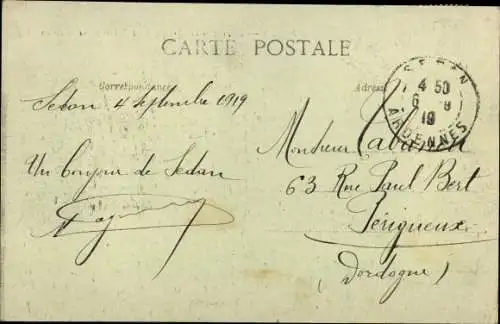 CARTE POSTALE
Correspondance
Adresse
SEDAN
4 50
6 9
19
ARDENNES
Sedan 4 Septembre 1919
Un bonjour de Sedan
Monsieur
63 Rue Paul Bert
Périgueux
(Dordogne)